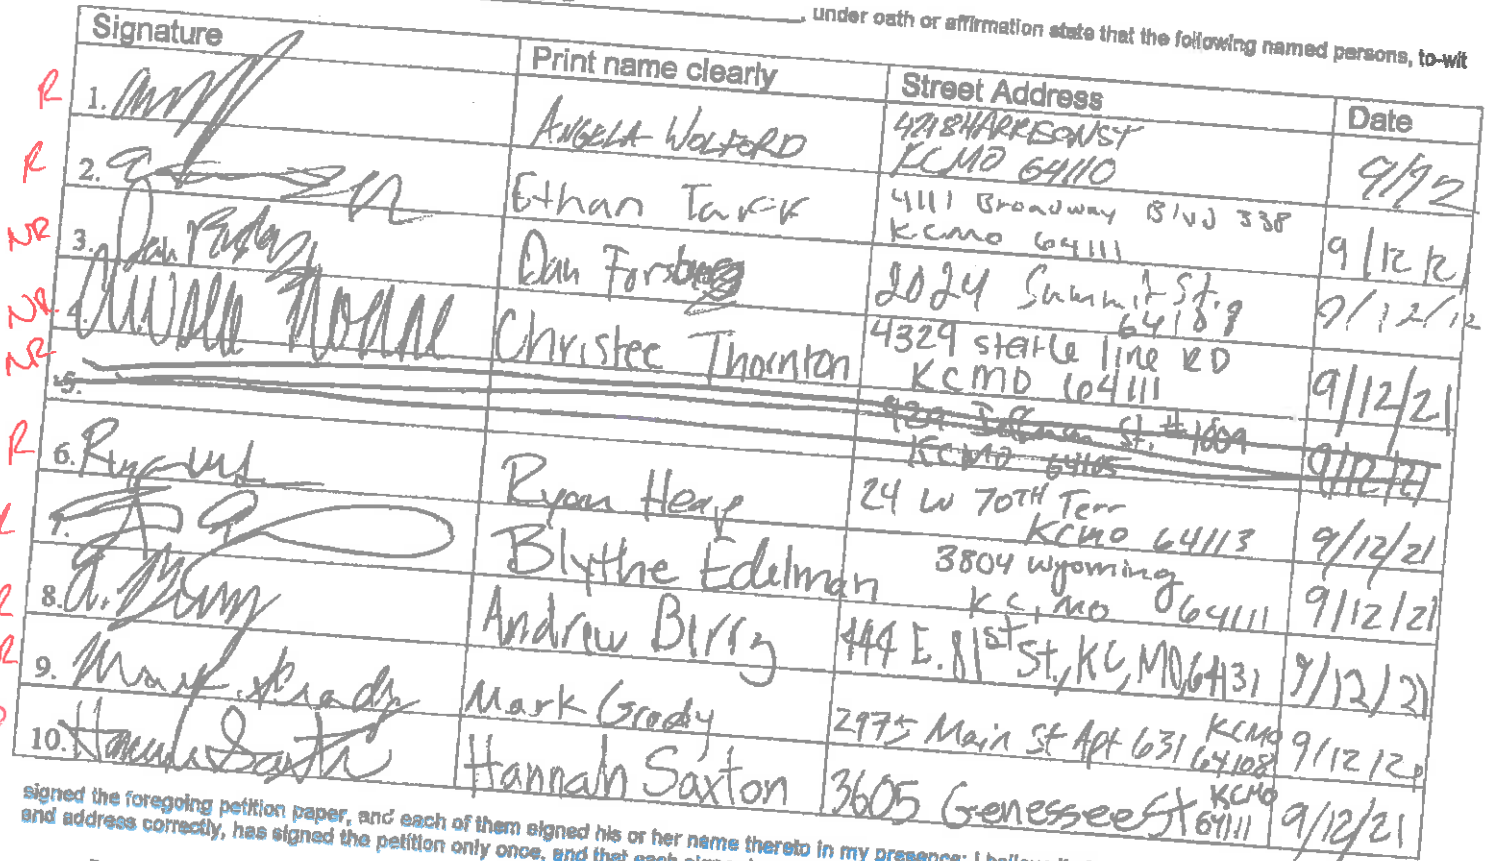 , under oath or affirmation state that the following named persons, to-wit
Signature Print name clearly Street Address Date
R 1. ANGELA WOLFORD 4218 HARRISON ST
KCMO 64110
R 2. Ethan Tarr 4111 Broadway Blvd 338
KCMO 64111 9/12/2
NR 3. Dan Forsberg 2024 Summit St.
9/12/12
NR 4. Christee Thornton 4329 state line RD
KCMO 64111 9/12/21
NR 5. St. #1604
KCMO 64105 9/12/21
R 6. Ryan Heap 24 W 70TH Terr
KCMO 64113 9/12/21
7. Blythe Edelman 3804 Wyoming
KC, MO 64111 9/12/21
8. A. Berry Andrew Berry 444 E. 81st St., KC, MO, 64131 9/12/21
9. Mark Grady Mark Grady 2975 Main St Apt 631 KCMO
64108 9/12/2
10. Hannah Saxton Hannah Saxton 3605 Genessee St KCMO
64111 9/12/21
signed the foregoing petition paper, and each of them signed his or her name thereto in my presence; I believe
and address correctly, has signed the petition only once, and that each